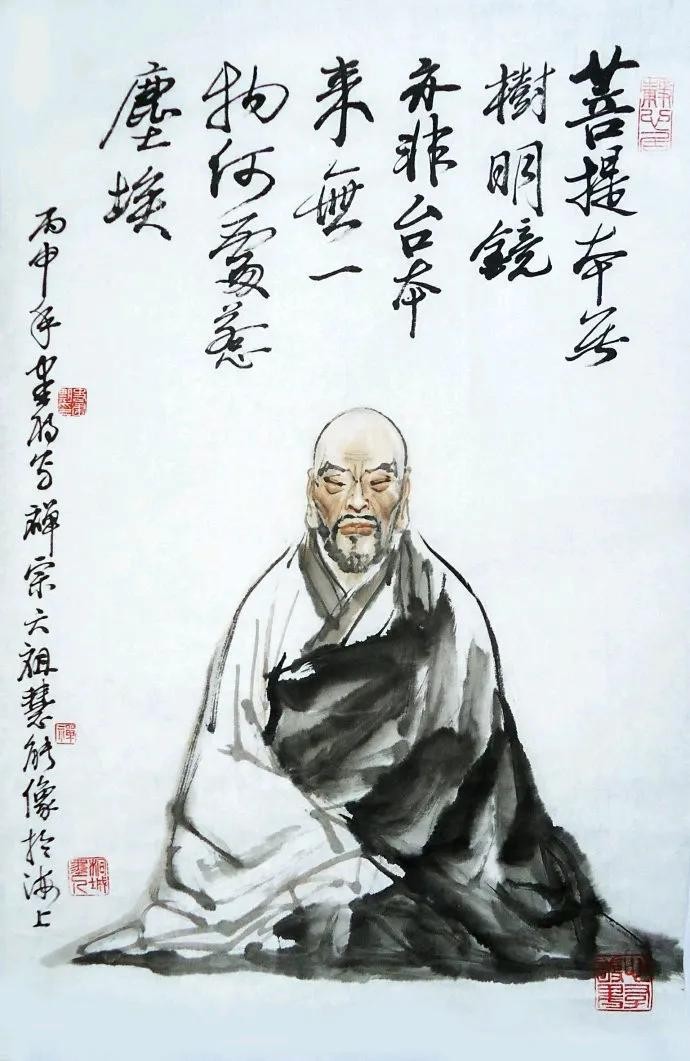 菩提本無
樹明鏡
亦非台本
来無一
物何處惹
塵埃
丙申年 写禅宗六祖慧能像於海上
禪
桐城